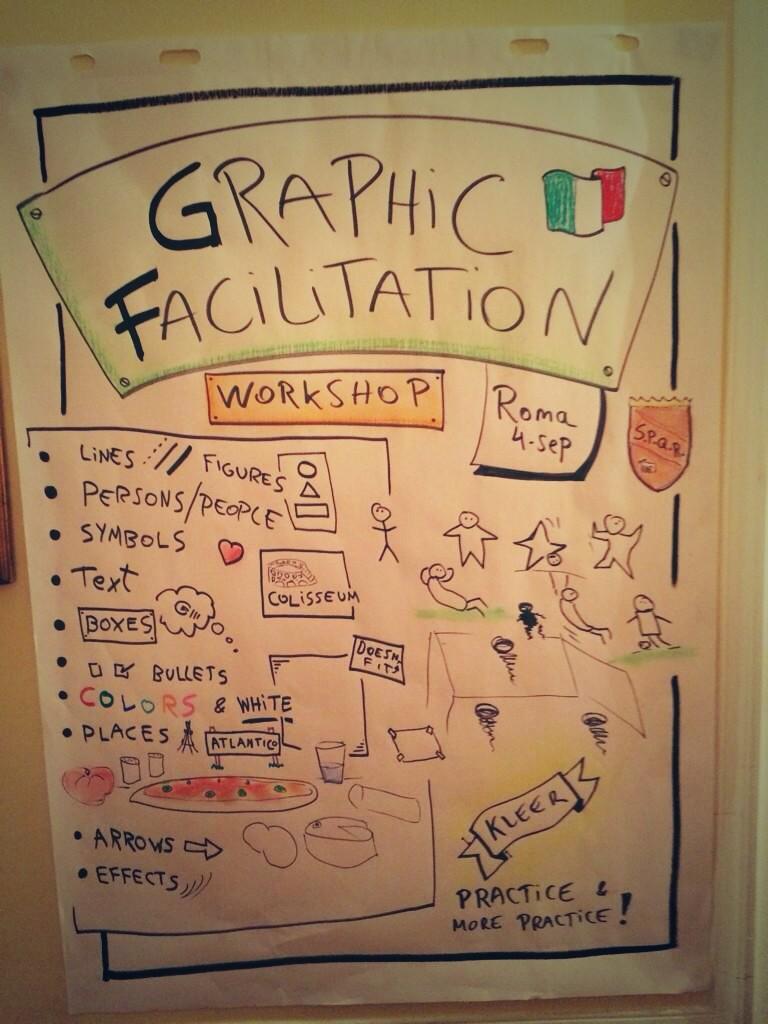 GRAPHiC
FACiLiTATiON
WORKSHOP
Roma
4-sep
S.P.Q.R.
LINES
FIGURES
PERSONS/PEOPLE
SYMBOLS
Text
COLISSEUM
BOXES
DOESN
FITS
BULLETS
COLORS & WHITE
PLACES
ATLANTICO
ARROWS
EFFECTS
KLEER
PRACTICE &
MORE PRACTICE!